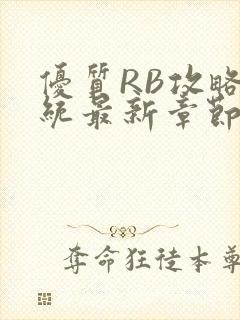 優質RB攻略
統最新章節
奪命狂徒本尊